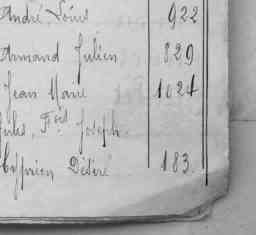 André Louis 922
Armand Julien 829
Jean Marie 1024
Jules, Fçois Joseph.
Cyprien Désiré 183.